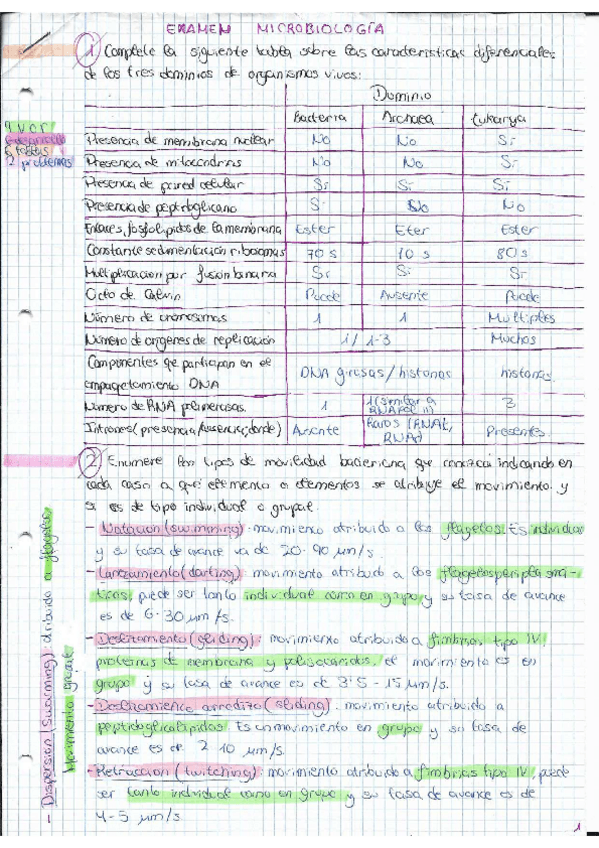 EXAMEN MICROBIOLOGÍA
① Complete la siguiente tabla sobre las características diferenciales
de los tres dominios de organismos vivos:
Dominio
Bacteria Archaea Eukarya
Presencia de membrana nuclear No No Sí
Presencia de mitocondrias No No Sí
Presencia de pared celular Sí Sí Sí
Presencia de peptidoglicano Sí No No
Enlaces, fosfolípidos de la membrana Ester Eter Ester
Constante sedimentación ribosomas 70 s 10 s 80 s
Multiplicación por fusión binaria Sí Sí Sí
Ciclo de Calvin Puede Ausente Puede
Número de cromosomas 1 1 Múltiples
Número de orígenes de replicación 1 / 1-3 Muchos
Componentes que participan en el
empaquetamiento DNA
DNA girasas / histonas histonas
Número de RNA polimerasas 1 1 (similar a RNApol II) 3
Intrones (presencia/ausencia; donde) Ausente Raros (RNAt, RNAr) Presentes
2 problemas
② Enumere los tipos de movilidad bacteriana que conozca indicando en
cada caso a qué elemento o elementos se atribuye el movimiento y
si es de tipo individual o grupal.
- Natación (swimming): movimiento atribuido a los flagelos. Es individual
y su tasa de avance va de 20-90 µm/s.
- Lanzamiento (darting): movimiento atribuido a los flagelos periplasmá-
ticos, puede ser tanto individual como en grupo y su tasa de avance
es de 6-30 µm/s.
- Deslizamiento (gliding): movimiento atribuido a fimbrias tipo IV,
proteínas de membrana y polisacáridos, el movimiento es en
grupo y su tasa de avance es de 3'5 - 15 µm/s.
- Deslizamiento (sliding): movimiento atribuido a
peptidoglicolípidos. Es un movimiento en grupo y su tasa de
avance es de 2-10 µm/s.
- Retracción (twitching): movimiento atribuido a fimbrias tipo IV, puede
ser tanto individual como en grupo y su tasa de avance es de
4-5 µm/s
- Dispersión (swarming): atribuido a flagelos
Movimiento grupal
1